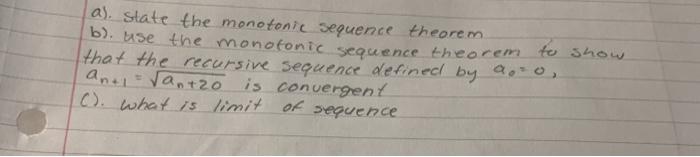 a). state the monotonic sequence theorem
b). use the monotonic sequence theorem to show
that the recursive sequence defined by a₀=0,
aₙ₊₁ = √aₙ+20 is convergent
C). what is limit of sequence